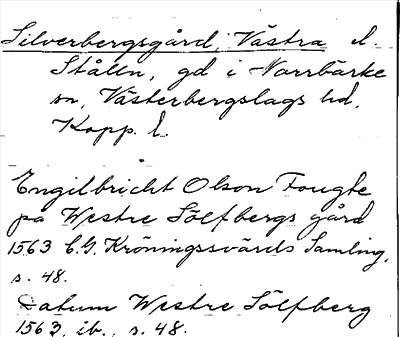 Silverbergsgård, Västra el.
Ställn, gd i Norrbärke
sn, Västerbergslags hd,
Kopp. l.
Engilbricht Olson Fougte
på Westre Sölfbergs gård
1563 C.G. Kröningssvärds Samling,
s. 48.
Datum Westre Sölfberg
1563, ib., s. 48.